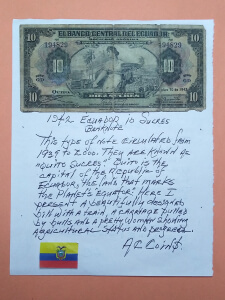 EL BANCO CENTRAL DEL ECUADOR
194823
10
10
QUITO
DIEZ SUCRES
10
10
1942 ECUADOR 10 SUCRES
BANKNOTE
THIS TYPE OF NOTE CIRCULATED FROM
1939 TO 2000. THEY ARE KNOWN AS
"QUITO SUCRES". QUITO IS THE
CAPITAL OF THE REPUBLIC OF
ECUADOR, THE LAND THAT MARKS
THE PLANET'S EQUATOR. HERE I
PRESENT A BEAUTIFULLY DESIGNED
BILL WITH A TRAIN, A CARRIAGE PULLED
BY BULLS AND A PRETTY WOMAN SHOWING
AGRICULTURAL STATUS AND
AC COINS